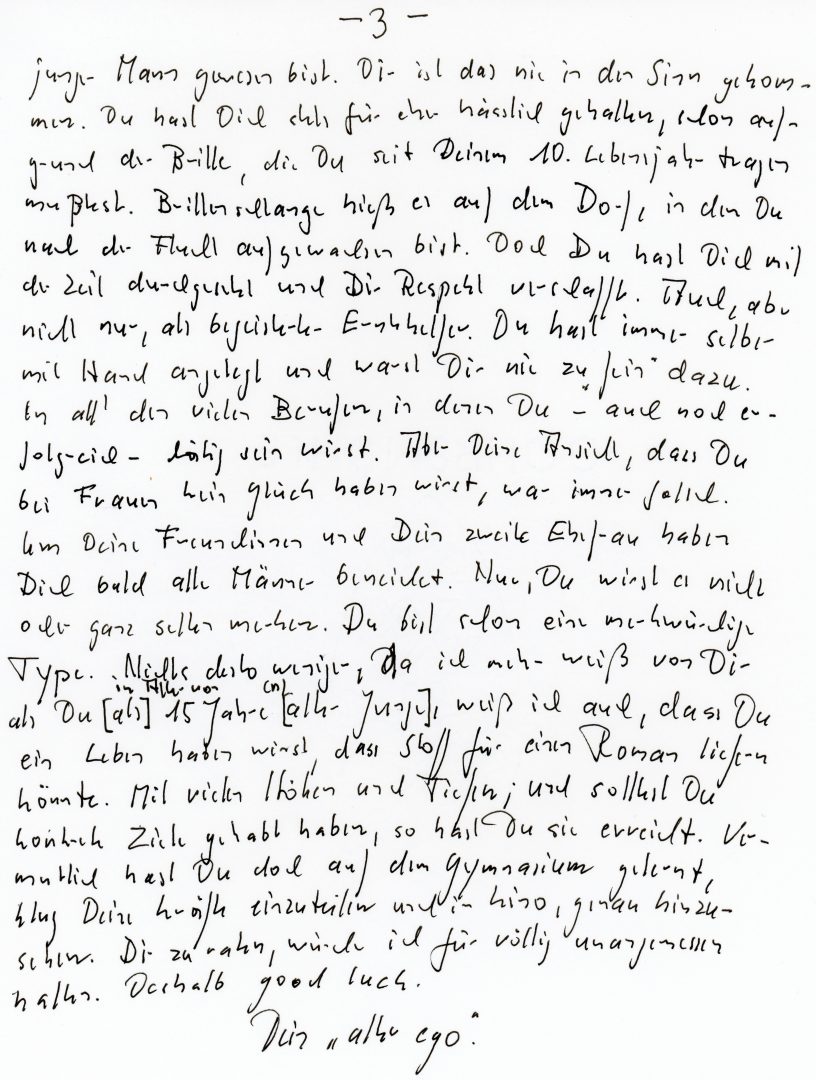 - 3 -
junger Mann gewesen bist. Dir ist das nie in den Sinn gekom-
men. Du hast Dich stets für eher hässlich gehalten, schon auf-
grund der Brille, die Du seit Deinem 10. Lebensjahr tragen
mußtest. Brillenschlange hieß es auf dem Dorf, in dem Du
nach der Flucht aufgewachsen bist. Doch Du hast Dich mit
der Zeit durchgesetzt und Dir Respekt verschafft. Auch, aber
nicht nur, als begeisterter Erntehelfer. Du hast immer selber
mit Hand angelegt und warst Dir nie zu „fein" dazu.
In all' den vielen Berufen, in denen Du - auch noch er-
folgreich - tätig sein wirst. Aber Deine Ansicht, dass Du
bei Frauen kein Glück haben wirst, war immer falsch.
Um Deine Freundinnen und Dein zweite Ehefrau haben
Dich bald alle Männer beneidet. Nur, Du wirst es nicht
oder ganz selten merken. Du bist schon eine merkwürdige
Type. Nichts desto weniger, da ich mehr weiß von Dir
als Du [als] im Alter von 15 Jahre(n) [alter Junge], weiß ich auch, dass Du
ein Leben haben wirst, dass Stoff für einen Roman liefern
könnte. Mit vielen Höhen und Tiefen; und solltest Du
konkrete Ziele gehabt haben, so hast Du sie erreicht. Ver-
mutlich hast Du doch auf dem Gymnasium gelernt,
klug Deine Kräfte einzuteilen und im Kino, genau hinzu-
sehen. Dir zu raten, würde ich für völlig unangemessen
halten. Deshalb good luck.
Dein „alter ego".